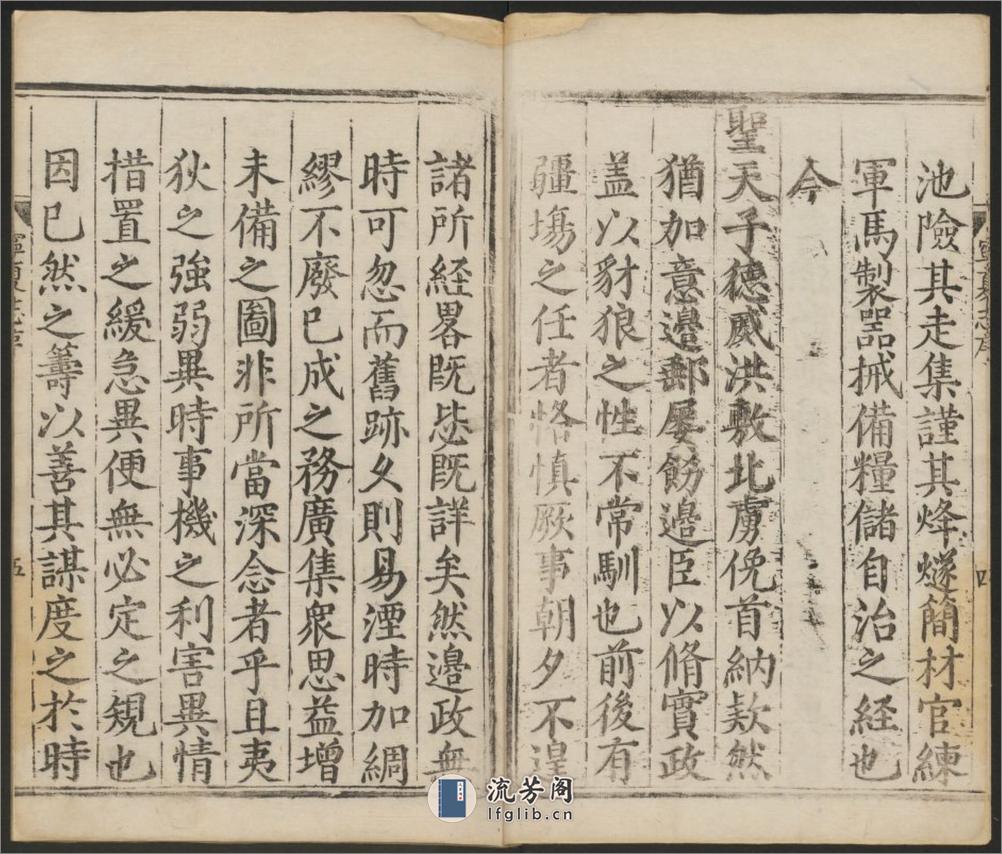 池險其走集謹其烽燧簡材官練
軍馬製器械備糧儲自治之経也
今
聖天子德威洪敷北虜俛首納款然
猶加意邊鄙屡飭邊臣以脩實政
盖以豺狼之性不常馴也前後有
疆埸之任者恪慎厥事朝夕不遑
諸所経畧既悉既詳矣然邊政無
時可忽而舊跡久則易湮時加綢
繆不廢已成之務廣集衆思益增
未備之圖非所當深念者乎且夷
狄之強弱異時事機之利害異情
措置之緩急異便無必定之規也
因已然之籌以善其謀度之於時
寧夏志序
四
寧夏志序
五
流芳阁
lfglib.cn